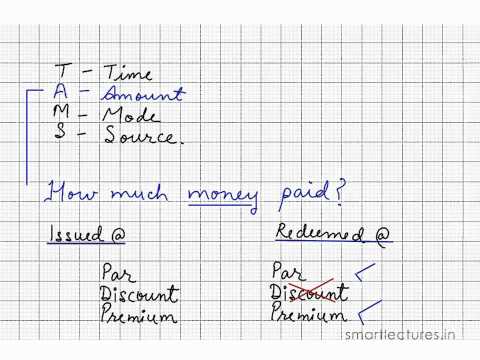 T - Time
A - Amount
M - Mode
S - Source.
How much money paid?
Issued @
Redeemed @
Par
Par
Discount
Discount
Premium
Premium
smartlectures.in